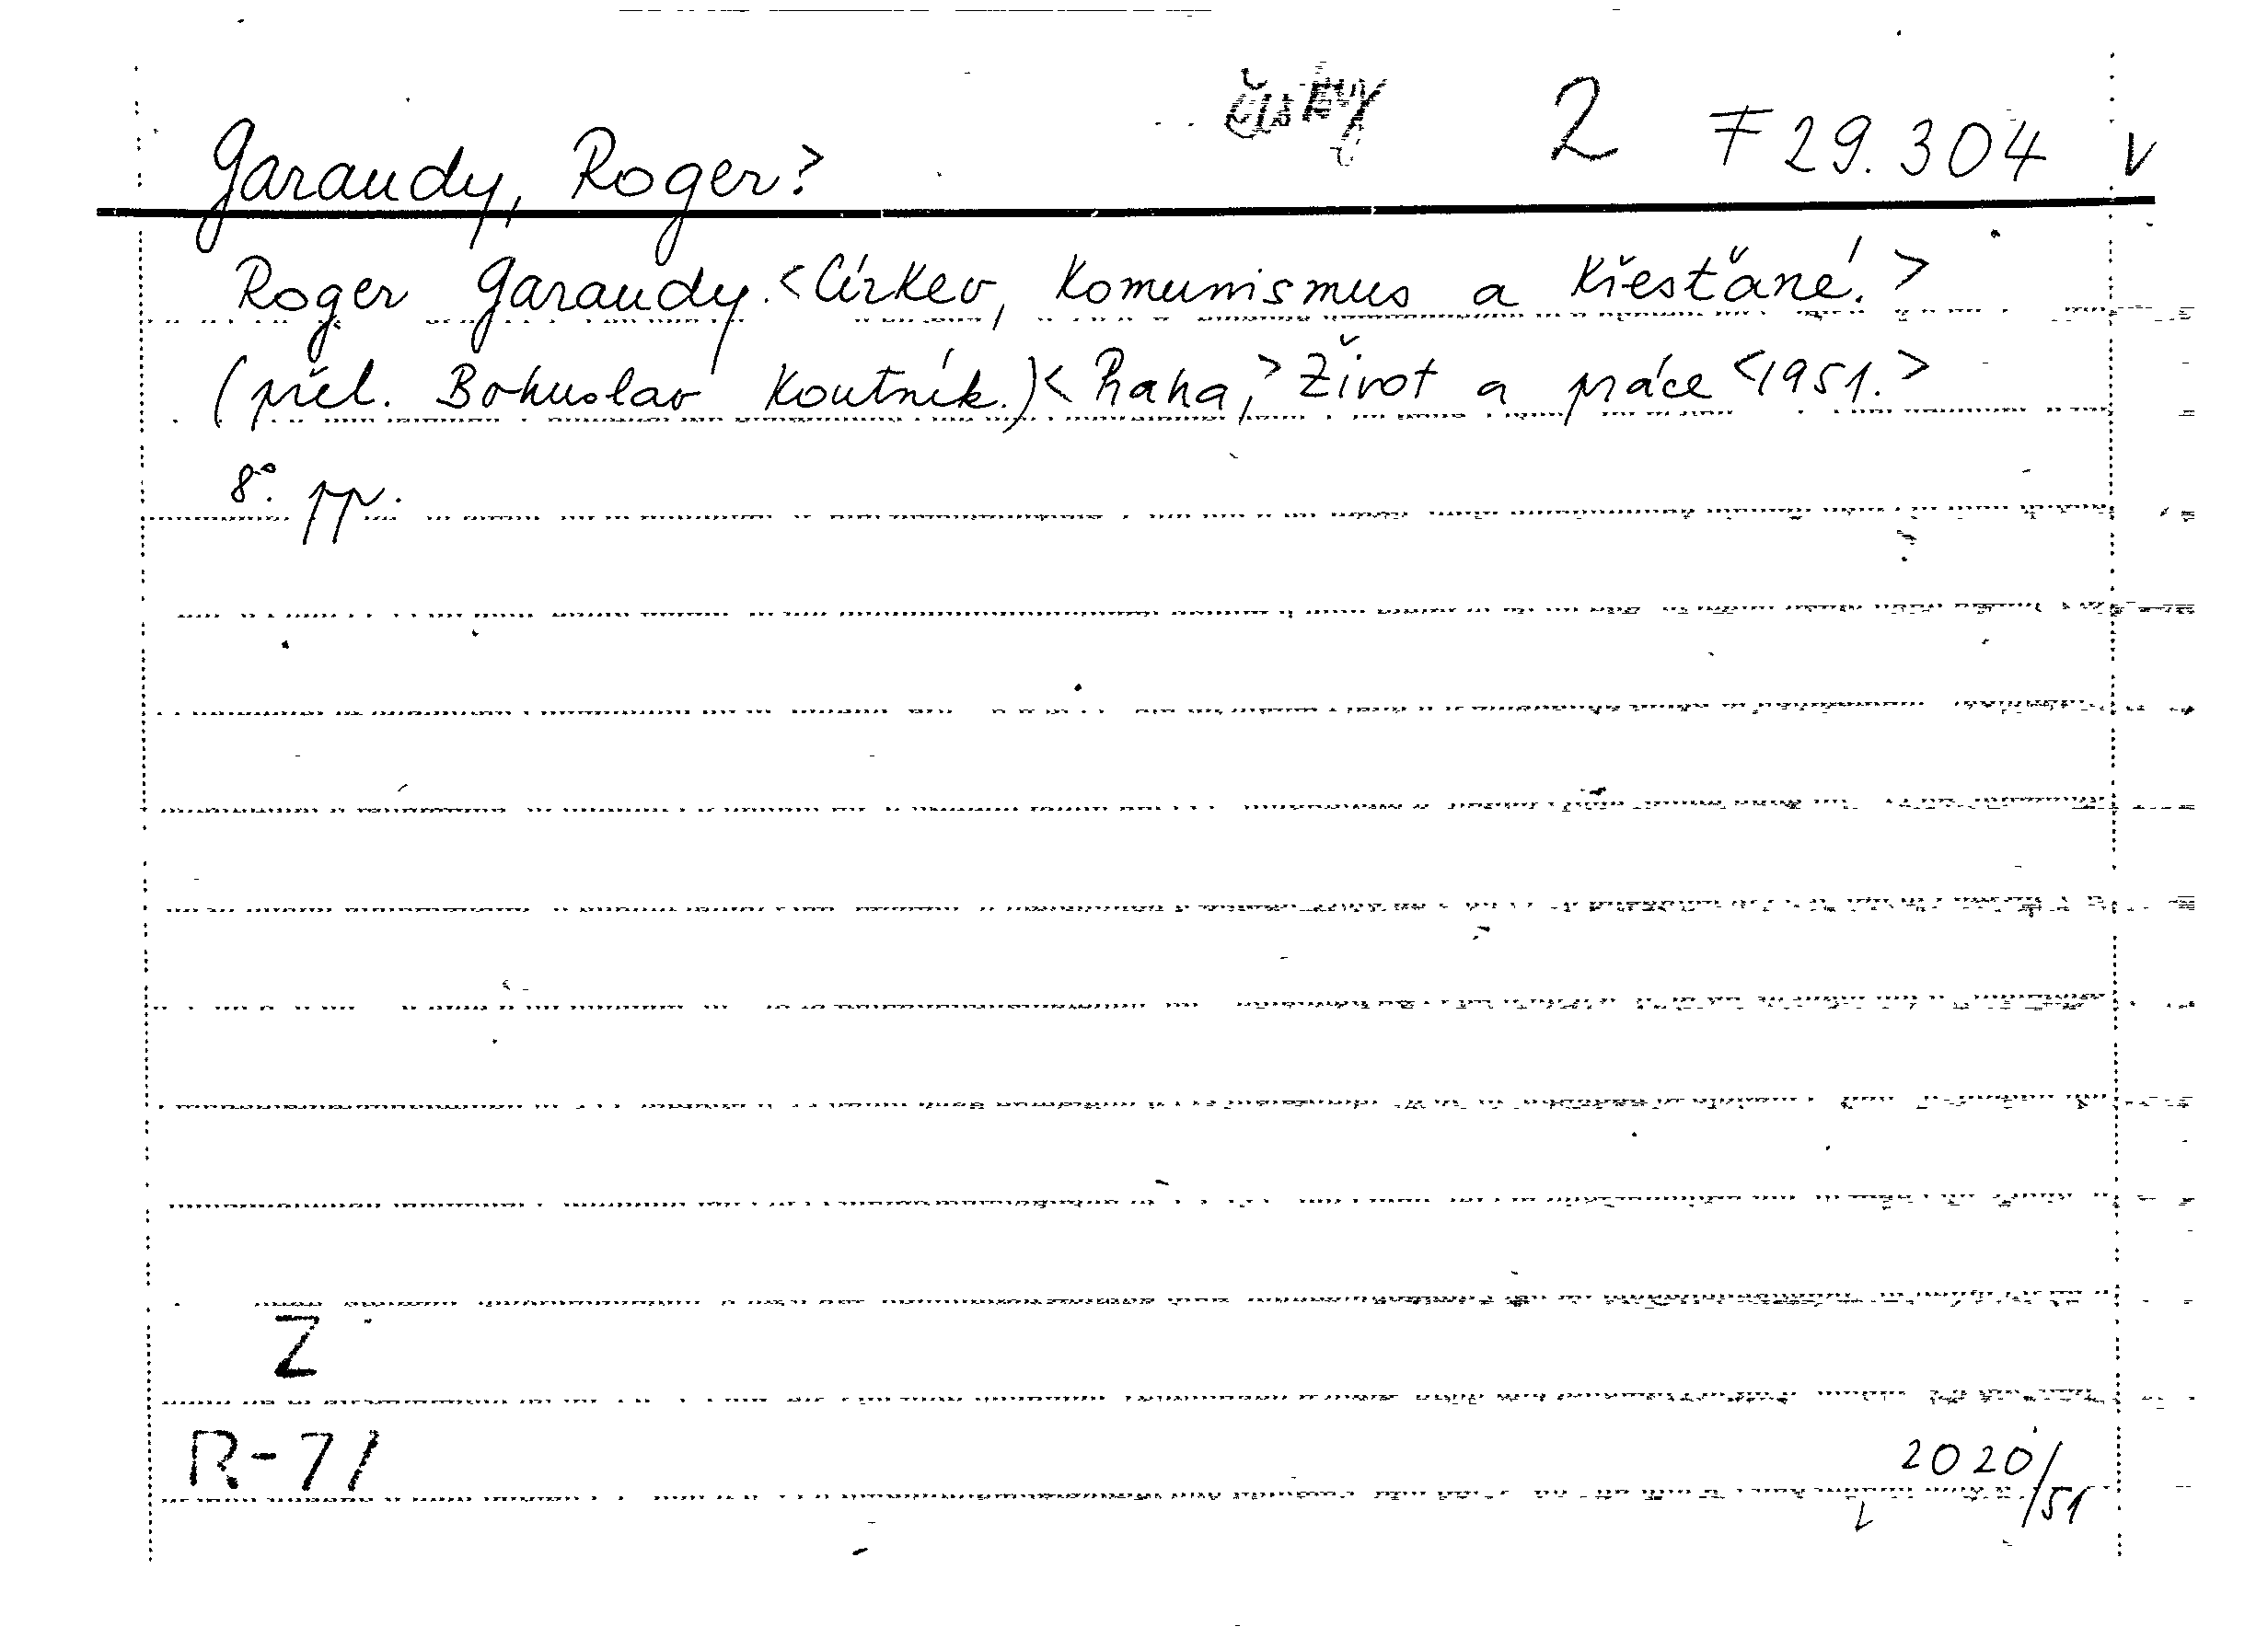 český 2 F 29.304 V
Garaudy, Roger?
Roger Garaudy. <Církev, Komunismus a Křesťané.>
(přel. Bohuslav Koutník.) <Praha,> Život a práce <1951.>
8°. pp.
Z
R-71
2020/51